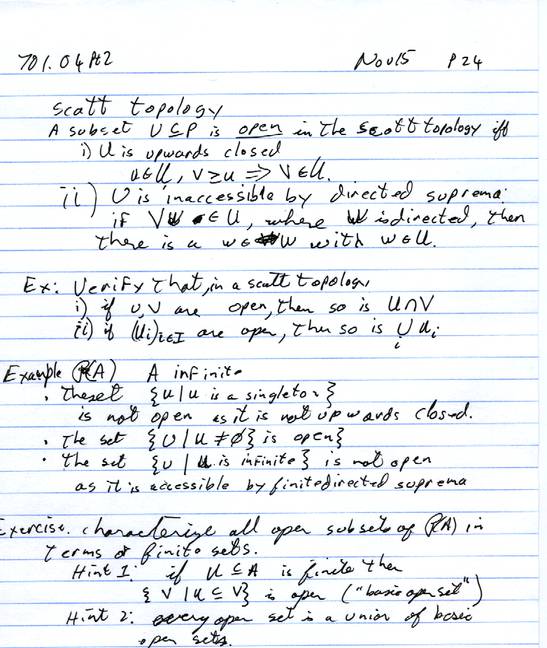 701.04 Pt2 Nov15 P24
Scott topology
A subset U ⊆ P is open in the Scott topology iff
i) U is upwards closed
u∈U, v≥u ⇒ v∈U.
ii) U is inaccessible by directed suprema:
if ∨W ∈ U, where W is directed, then
there is a w∈W with w∈U.
Ex: Verify that, in a scott topology
i) if U, V are open, then so is U∩V
ii) if (Ui)i∈I are open, then so is ∪i Ui
Example P(A) A infinite
· The set {u | u is a singleton}
is not open as it is not upwards closed.
· The set {U | U ≠ ∅} is open}
· The set {U | U is infinite} is not open
as it is accessible by finite directed suprema
Exercise. characterize all open subsets of P(A) in
terms of finite sets.
Hint 1: if U ⊆ A is finite then
{V | U ⊆ V} is open ("basic open set")
Hint 2: every open set is a union of basic
open sets.